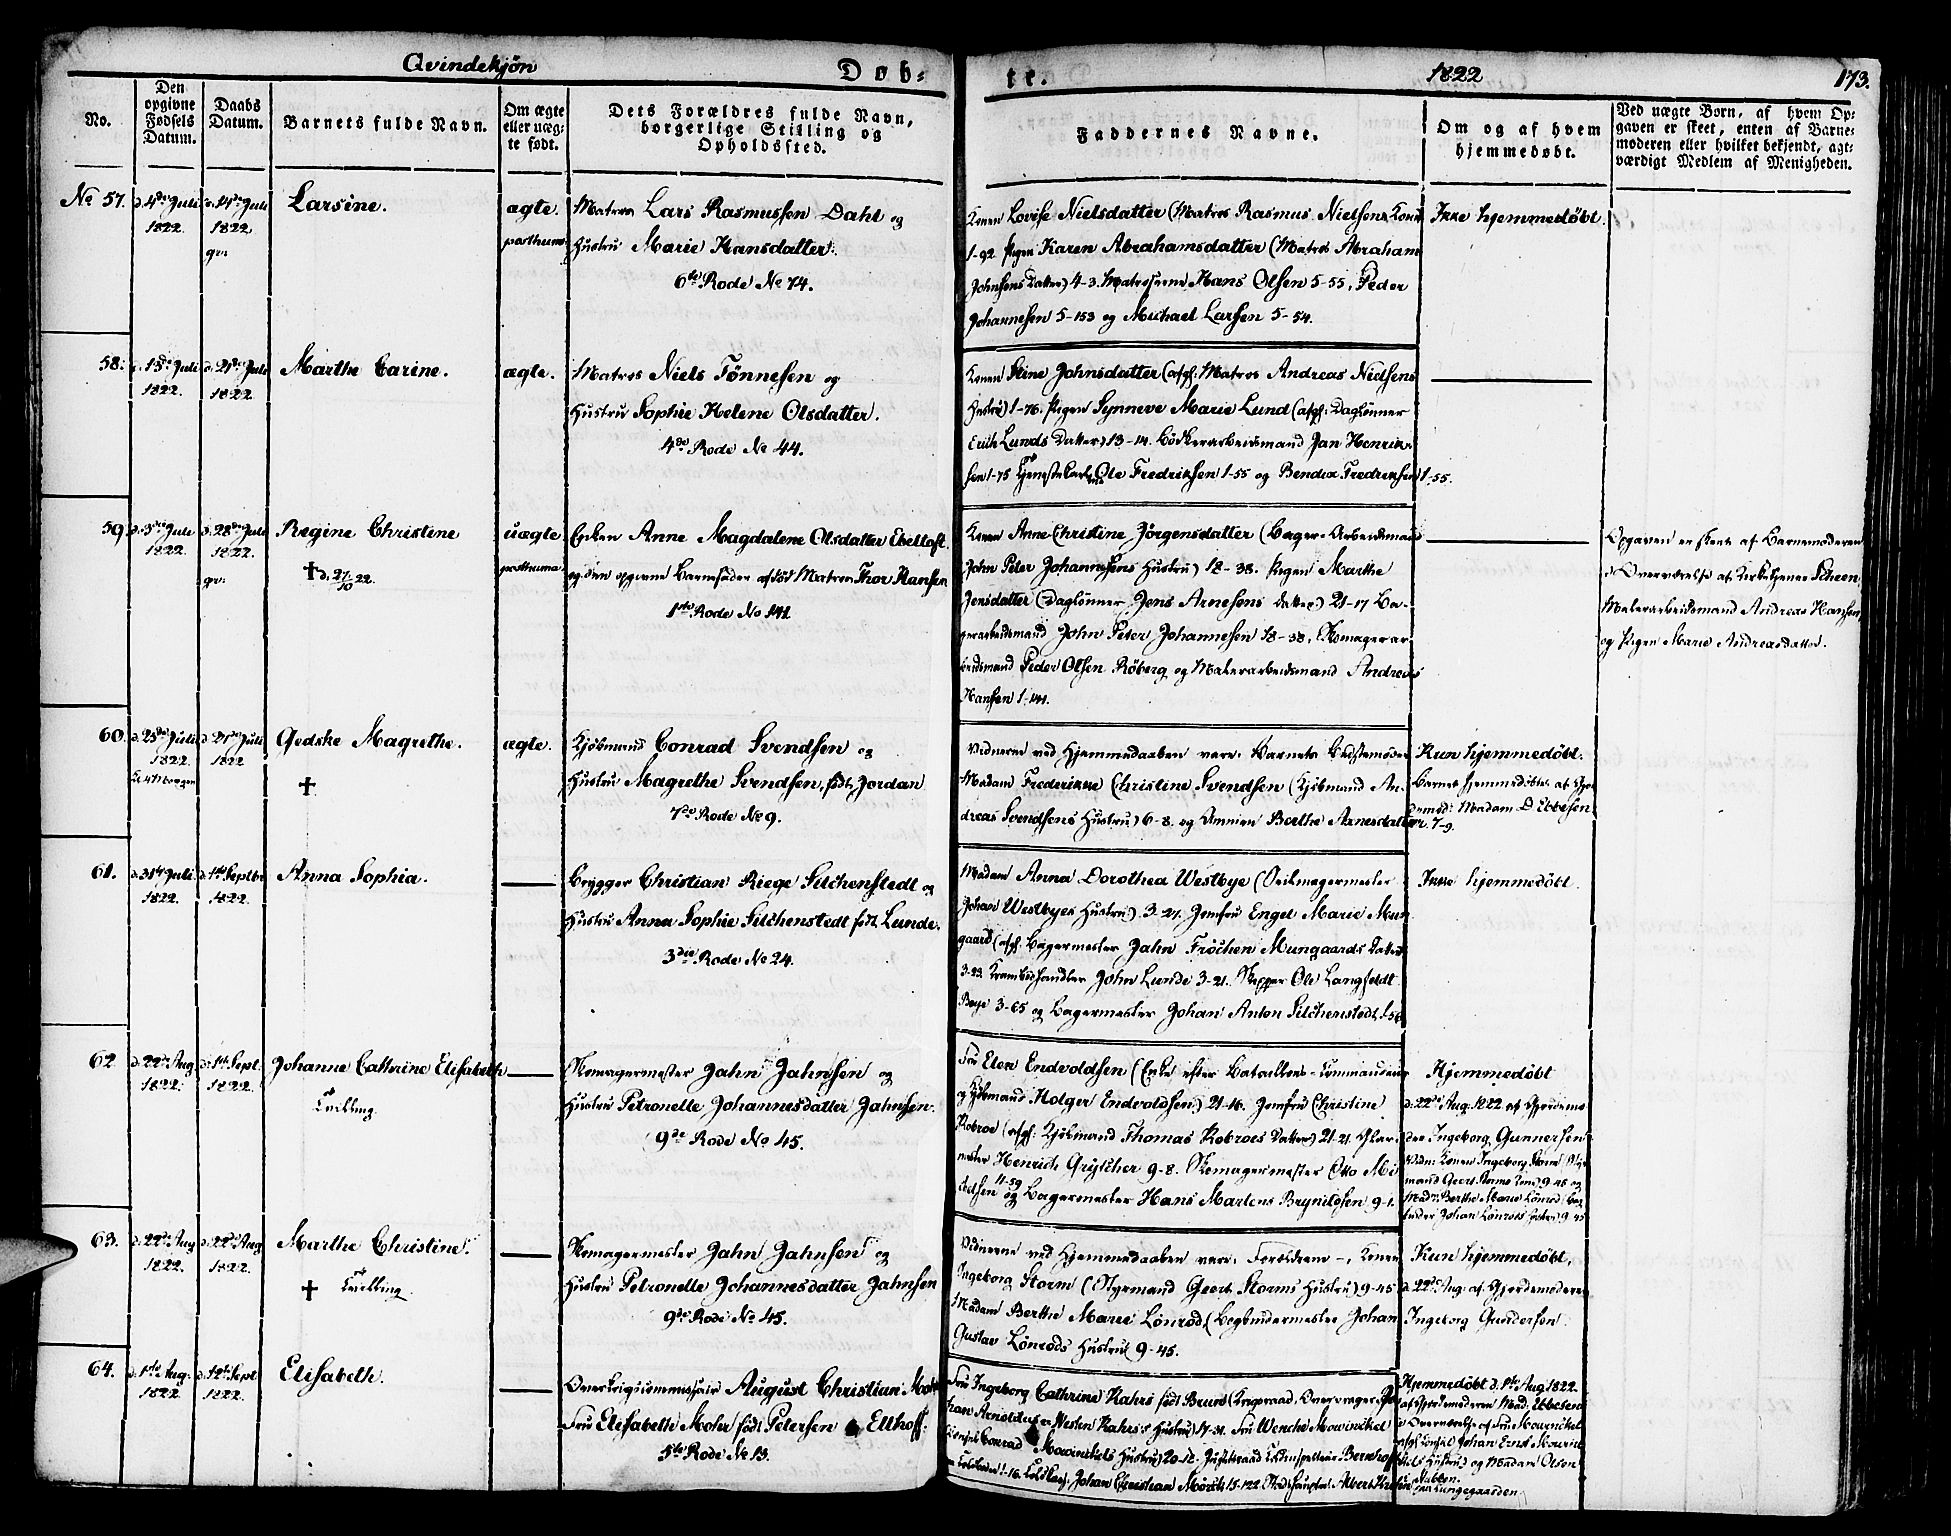 Qvindekjøn
Døb-
te.
1822
173.
No.
Den
opgivne
Fødsels
Datum.
Daabs
Datum.
Barnets fulde Navn.
Om ægte
eller uæg-
te født.
Dets Forældres fulde Navn,
borgerlige Stilling og
Opholdssted.
Faddernes Navne.
Om og af hvem
hjemmedøbt.
Ved uægte Børn, af hvem Op-
gaven er skeet, enten af Barne-
moderen eller hvilket bekjendt, agt-
værdigt Medlem af Menigheden.
No 57.
d. 4de Juli
1822.
d. 14de Juli
1822.
Larsine.
ægte.
Matros Lars Rasmussen Dahl og
Hustru Marie Hansdatter.
6te Rode No 74.
Konen Lovise Nielsdatter (Matros Rasmus Nielsens Kone)
1-92. Pigen Karen Abrahamsdatter (Matros Abraham
Johnsens Datter) 4-3. Matroserne Hans Olsen 5-55, Peder
Johannesen 5-153 og Michael Larsen 5-54.
Ikke hjemmedøbt.
58.
Juli
1822.
d. 21de Juli
1822.
Marthe Carine.
ægte.
Matros Niels Tønnesen og
Hustru Sophie Helene Olsdatter.
4de Rode No 44.
Konen Stine Johnsdatter (afg: Matros Andreas Nielsens
Hustru) 1-76. Pigen Synneve Marie Lund (afg: Daglønner
Erich Lunds Datter) 13-14. Bødkerarbeidsmand Jan Henrik-
sen 1-75 Ole Fredriksen 1-55 og Bendix Fredriksen 1-55.
59
d. 3die Juli
1822.
d. 28de Juli
1822.
Regine Christine
† d. 27/10 22.
uægte
Enken Anne Magdalene Olsdatter Ebeltoft
og den opgivne Barnefader afdød Matros Thor Hansen
1ste Rode No 141
Konen Anne Christine Jørgensdatter (Bager-Arbeidsmand
John Peter Johannesens Hustru) 18-38. Pigen Marthe
Jensdatter (Daglønner Jens Arnesens Datter) 21-17 Ba-
gerarbeidsmand John Peter Johannesen 18-38, Skomagerar-
beidsmand Peder Olsen Röberg og Malerarbeidsmand Andreas
Hansen 1-141.
Opgaven er skeet af Barnemoderen
i Overværelse af Kirketjener Scheen
Malerarbeidsmand Andreas Hansen
og Pigen Marie Andreasdatter.
60.
Juli
1822.
Juli
1822
Gedske Magrethe.
†
ægte.
Kjøbmand Conrad Svendsen og
Hustru Magrethe Svendsen, født Jordan
7de Rode No 9.
Vidnerne ved Hjemmedaaben vare: Barnets Bedstemoder
Madam Frederikke Christine Svendsen (Kjøbmand An-
dreas Svendsens Hustru) 6-8. og Ammen Berthe Arnesdatter 7-9.
Kun hjemmedøbt.
Barnet hjemmedøbtes af Gjor-
demod: Madam D. Ebbesen
61.
d. 31te Juli
1822.
d. 1ste Septbr
1822.
Anna Sophia.
Brygger Christian Riege Silchenstedt og
Hustru Anna Sophie Silchenstedt født Lunde.
3die Rode No 24.
Madam Anna Dorothea Westbye (Seilmagermester
Johan Westbyes Hustru) 3-27. Jomfru Engel Marie Mun-
gaard (afg. Bagermester Jahn Frøchen Mungaards Datter)
3-23. Krambodhandler John Lunde 3-21. Skipper Ole Langfeldt
Beye 3-65 og Bagermester Johan Anton Silchenstedt
Ikke hjemmedøbt.
62
d. 22de Aug
1822.
d. 1ste Sept
1822.
Johanne Cathrine Elisabeth
Tvilling
Skomagermester Jahn Jahnsen og
Hustru Petronelle Johannesdatter Jahnsen.
9de Rode No 45.
Fru Elen Endvoldsen (Enke efter Batallions-Commandeur
og Kjøbmand Holger Endvoldsen) 21-16. Jomfru Christine
Robroe (afg: Kjøbmand Thomas Robroes Datter) 21-21.
mester Henrich Grytcher 9-8. Skomagermester Otto
11-59 og Bagermester Hans Martens Brynildsen 9-1.
Hjemmedøbt
d. 22de Aug. 1822 af Gjordemo-
der Ingeborg Gunnersen
Vidn: Konen Ingeborg Storm (Styr-
mand Geert Storms Kone) 9-45 og
Mad: Berthe Marie Lönrod (Bog-
binder Johan Lönrods Hustru) 9-45
63.
d. 22de Aug
1822.
d. 22de Aug
1822.
Marthe Christine.
† Tvilling.
Skomagermester Jahn Jahnsen og
Hustru Petronelle Johannesdatter Jahnsen
9de Rode No 45.
Vidnerne ved Hjemmedaaben vare: Forældrene -, Konen
Ingeborg Storm (Styrmand Geert Storms Hustru) 9-45
Madam Berthe Marie Lönrod, (Bogbindermester Johan
Gustav Lönrods Hustru) 9-45.
Kun hjemmedøbt,
d. 22de Aug. af Gjordemoderen
Ingeborg Gundersen.
64.
d. 1ste Aug.
1822.
d. 12te Sept
1822.
Elisabeth.
Overkrigscommissair August Christian Mohr
Fru Elisabeth Mohr født Petersen Elthoff.
5te Rode No 13.
Fru Ingeborg Cathrine Kahrs født Bruns (Krigsraad,
Kahrs's Hustru) 17-31. Fru Wenche Mowinckel
Conrad Mowinckels Hustru) 20-12.
Johan Christian Mörch 15-122.
Hjemmedøbt d. 1ste Aug 1822.
af Gjordemoderen Mad. Ebbesen
i Overværelse af Fru Mowinckel
Johan Ernst Mowinc-
kels Hustru) og Madam Olsen
Lungegaarden